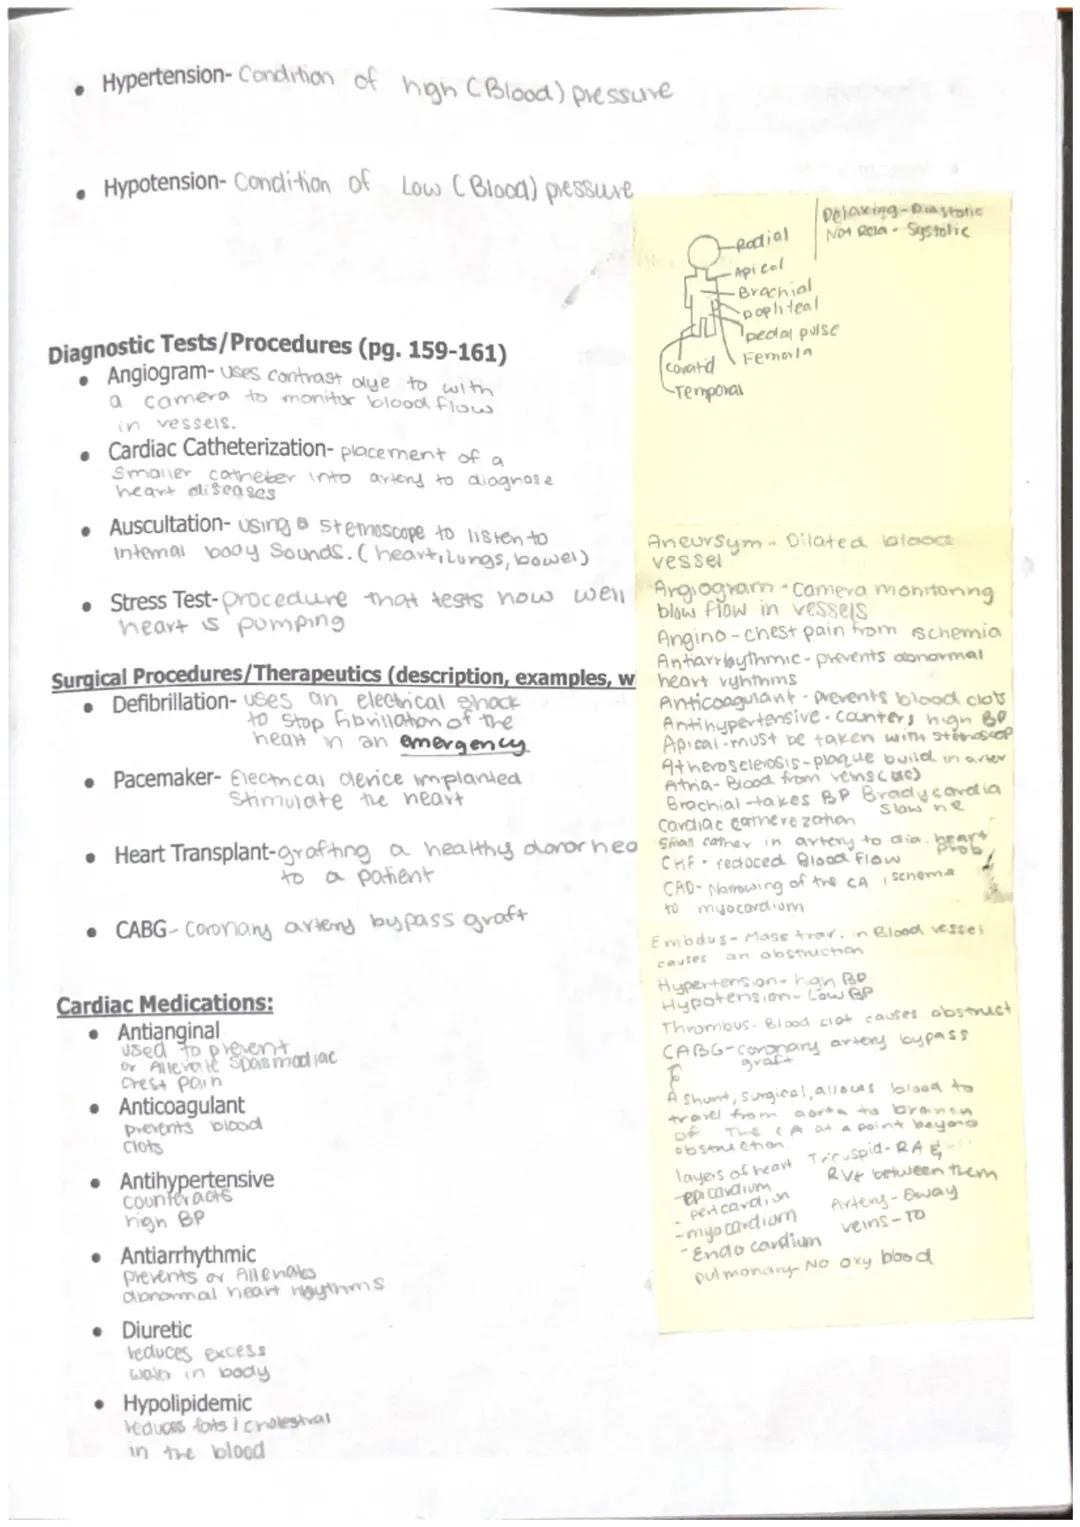 • Hypertension- Condition of high (Blood) pressure
• Hypotension- Condition of Low (Blood) pressure
Diagnostic Tests/Procedures (pg. 159-161)
• Angiogram- uses contrast dye to with
a camera to monitor blood flow
in vessels.
• Cardiac Catheterization- placement of a
smaller catheter into artery to diagnose
heart diseases
• Auscultation- using a stethoscope to listen to
internal body sounds. (heart, lungs, bowel)
• Stress Test- procedure that tests how well
heart is pumping
Surgical Procedures/Therapeutics (description, examples, w
• Defibrillation- uses an electrical shock
to stop fibrillation of the
heart in an emergency
• Pacemaker- Electrical device implanted
stimulate the heart
• Heart Transplant- grafting a healthy donor hea
to a patient
• CABG- Coronary artery bypass graft
Cardiac Medications:
• Antianginal
used to prevent
or Alleviate spasmodiac
chest pain
• Anticoagulant
prevents blood
clots
• Antihypertensive
counteracts
high BP
• Antiarrhythmic
prevents or Alleviates
abnormal heart rhythms
• Diuretic
reduces excess
water in body
• Hypolipidemic
reduces fats / cholestral
in the blood
Relaxing - Diastolic
Not Rela - Systolic
Radial
Apical
Brachial
popliteal
pedal pulse
Femorla
carotid
Temporal
Aneursym - Dilated blood
vessel
Angiogram - Camera monitoring
blow flow in vessels
Angino - chest pain from ischemia
Antiarrhythmic - prevents abnormal
heart ryhthms
Anticoagulant - prevents blood clots
Antihypertensive - counters high BP
Apical - must be taken with stethoscop
Atherosclerosis - plaque build in arter
Atria - Blood from veins
Brachial - takes BP Bradycardia
slow HR
Cardiac
small cather in artery to dia. heart
prob
CHF - reduced Blood flow
CAD - Narrowing of the CA, ischema
to myocardium
Embolus - Mass trav. in Blood vessel
causes an obstruction
Hypertension - high BP
Hypotension - Low BP
Thrombus - Blood clot causes obstruct
CABG - coronary artery bypass
graft
A shunt, surgical, allows blood to
travel from aorta to branch
of the CA at a point beyond
obstruction
layers of heart
- epicardium
- pericardium
- myocardium
- Endocardium
Tricuspid - RA &
RV between them
Artery - away
veins - TO
pulmonary - NO oxy blood